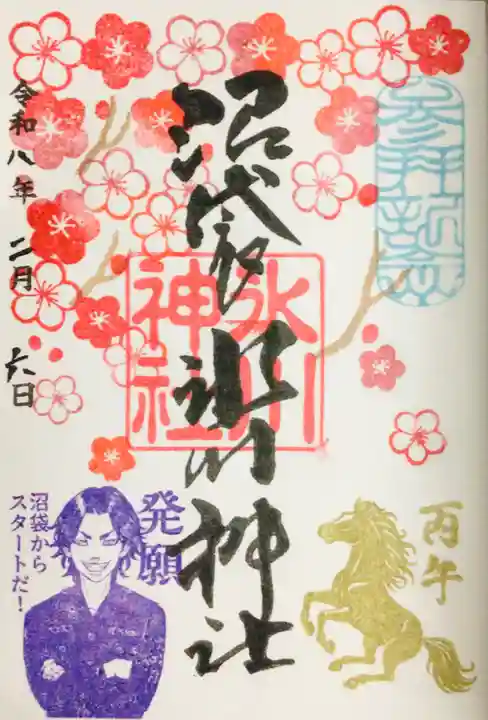 参拝記念
丙午
沼袋氷川神社
氷川
神社
発願
沼袋から
スタートだ！
令和八年 二月 六日